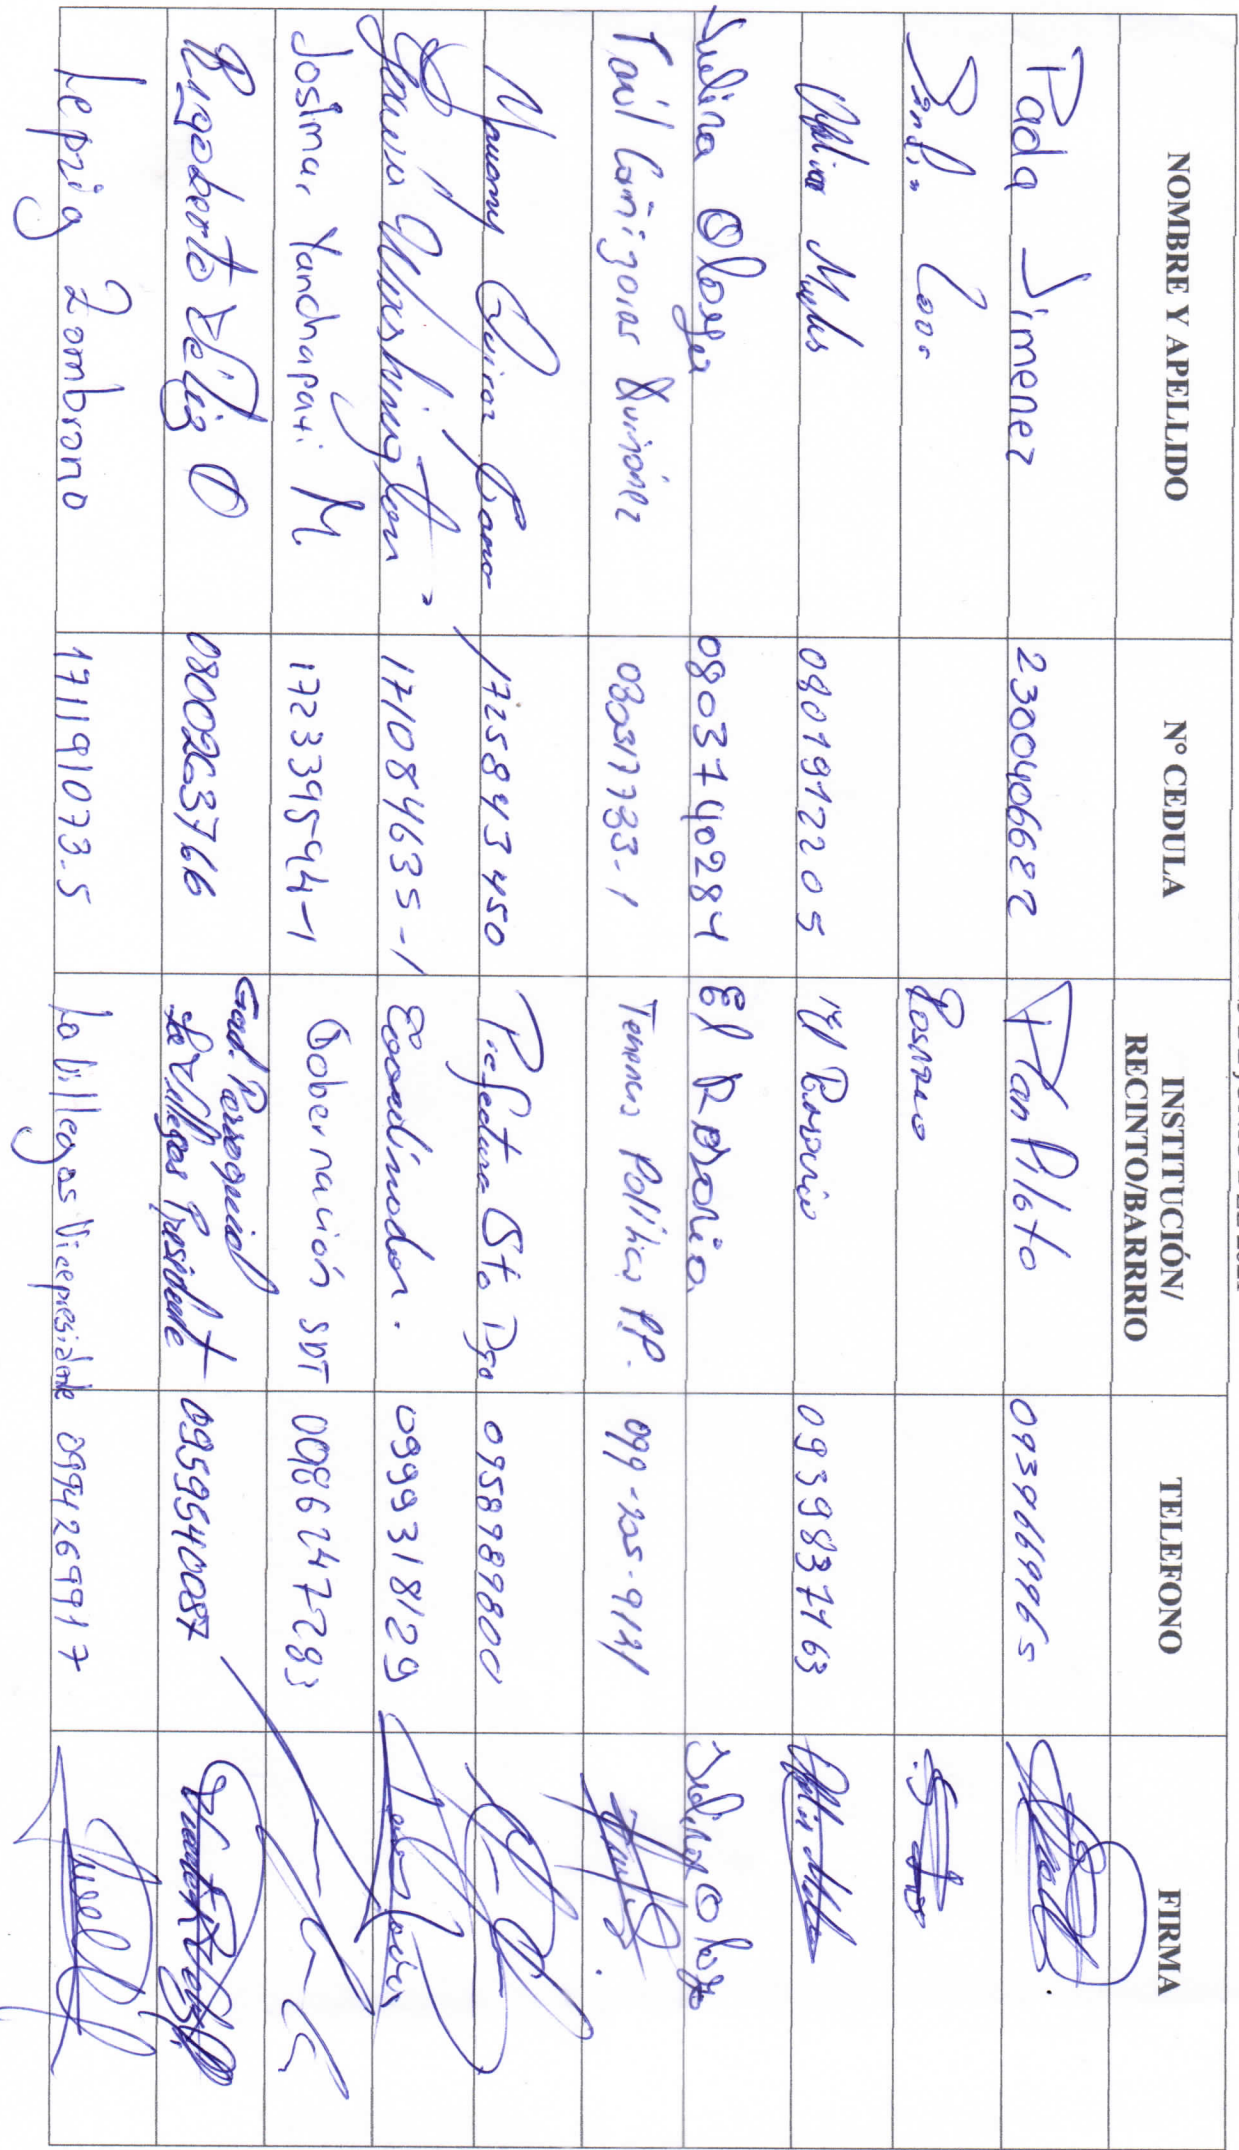 NOMBRE Y APELLIDO N° CEDULA INSTITUCIÓN/ RECINTO/BARRRIO TELEFONO FIRMA
Pada Jimenez 2300406682 Plan Piloto 0939669965
Rosario
Mufles 0801912205 El Rosario 0939837463
Julina Oloya 0803740284 El Rosario Julina Oloya
Cañizares Quiñónez 080317733-1 Tenencia Política P.P. 099-205-9121
1725843450 Prefectura Sto Dgo 0958989800
Washington 171084635-1 Coordinador. 0999318129
Josimar Yandapaxi M. 172339594-1 Gobernación SDT 0986247283
Rigoberto Véliz O 0800263766 Gad. Parroquial La Villegas Presidente 0959540087
Zambrano 171191073-5 La Villegas Vicepresidente 0994269917